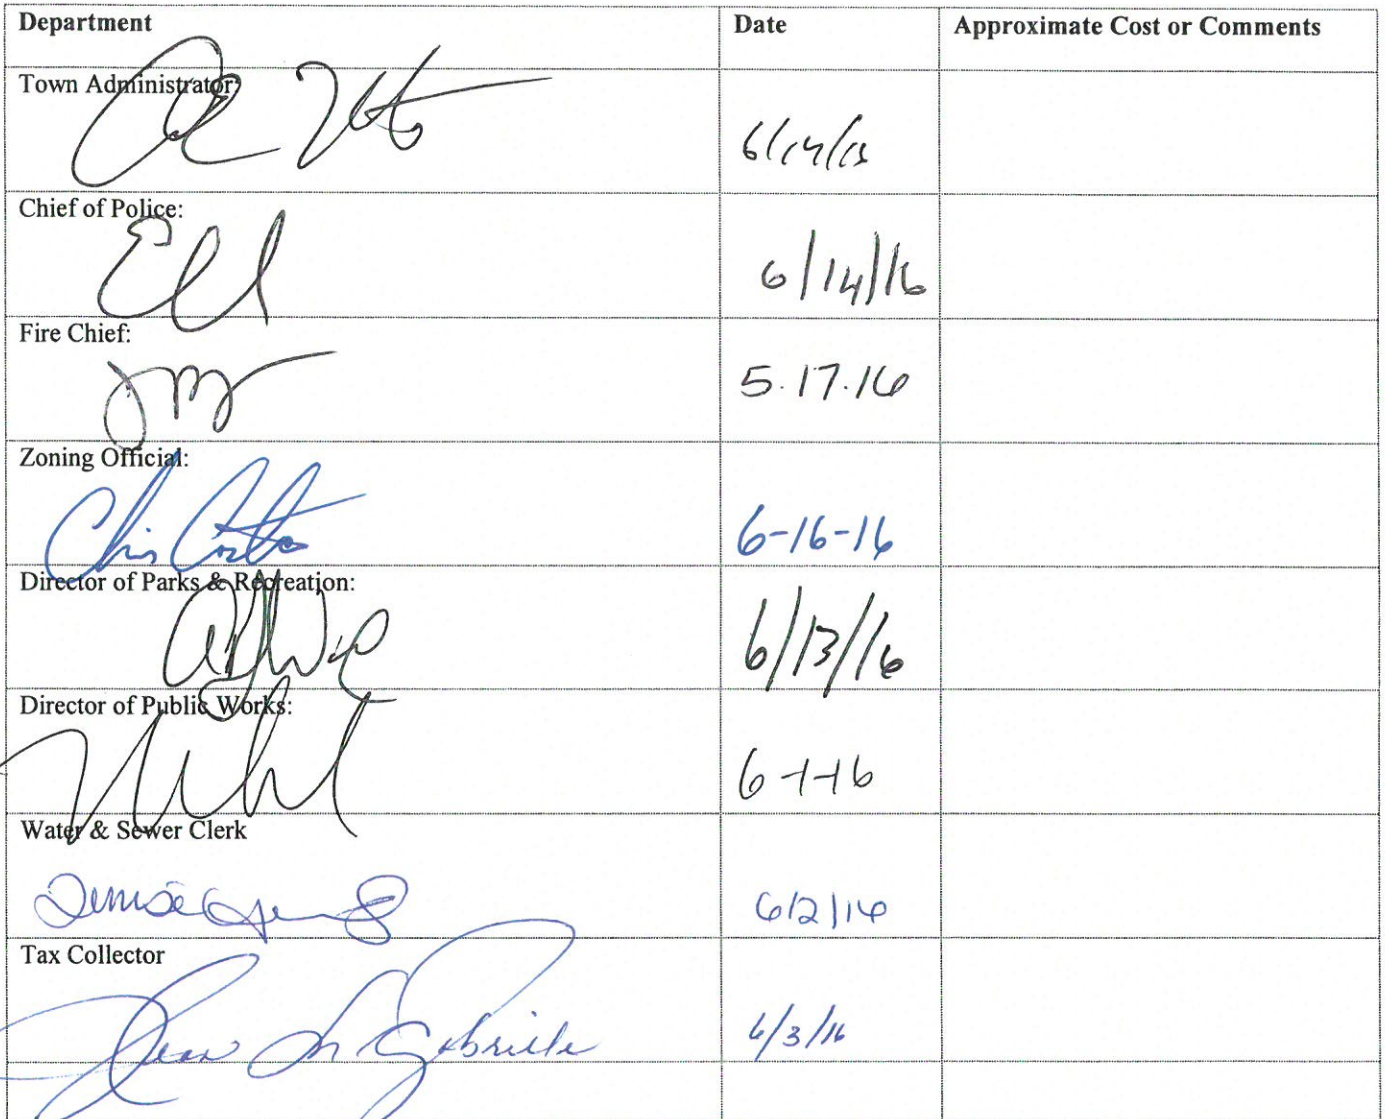 Department Date Approximate Cost or Comments
Town Administrator:
Chief of Police:
6/14/16
Fire Chief:
5.17.16
Zoning Official:
Chris Costa 6-16-16
Director of Parks & Recreation:
6/13/16
Director of Public Works:
6-1-16
Water & Sewer Clerk
Denise 6/2/16
Tax Collector
Jean M Gabriele 6/3/16